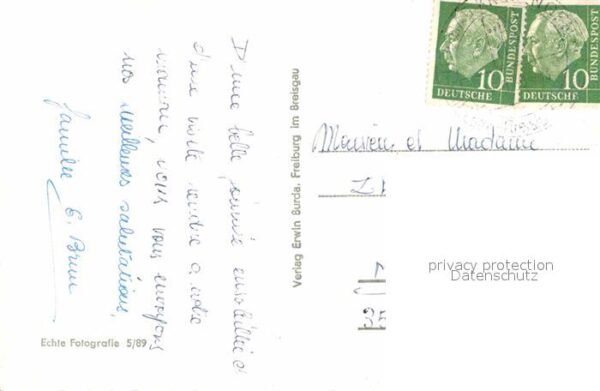 D'une belle journée ensoleillée et
d'une visite rendue a notre
vous vous envoyons
nos meilleures salutations,
famille E. Brun
Echte Fotografie 5/89
Verlag Erwin Burda, Freiburg im Breisgau
10
DEUTSCHE
BUNDESPOST
10
DEUTSCHE
BUNDESPOST
Monsieur et Madame
privacy protection
Datenschutz